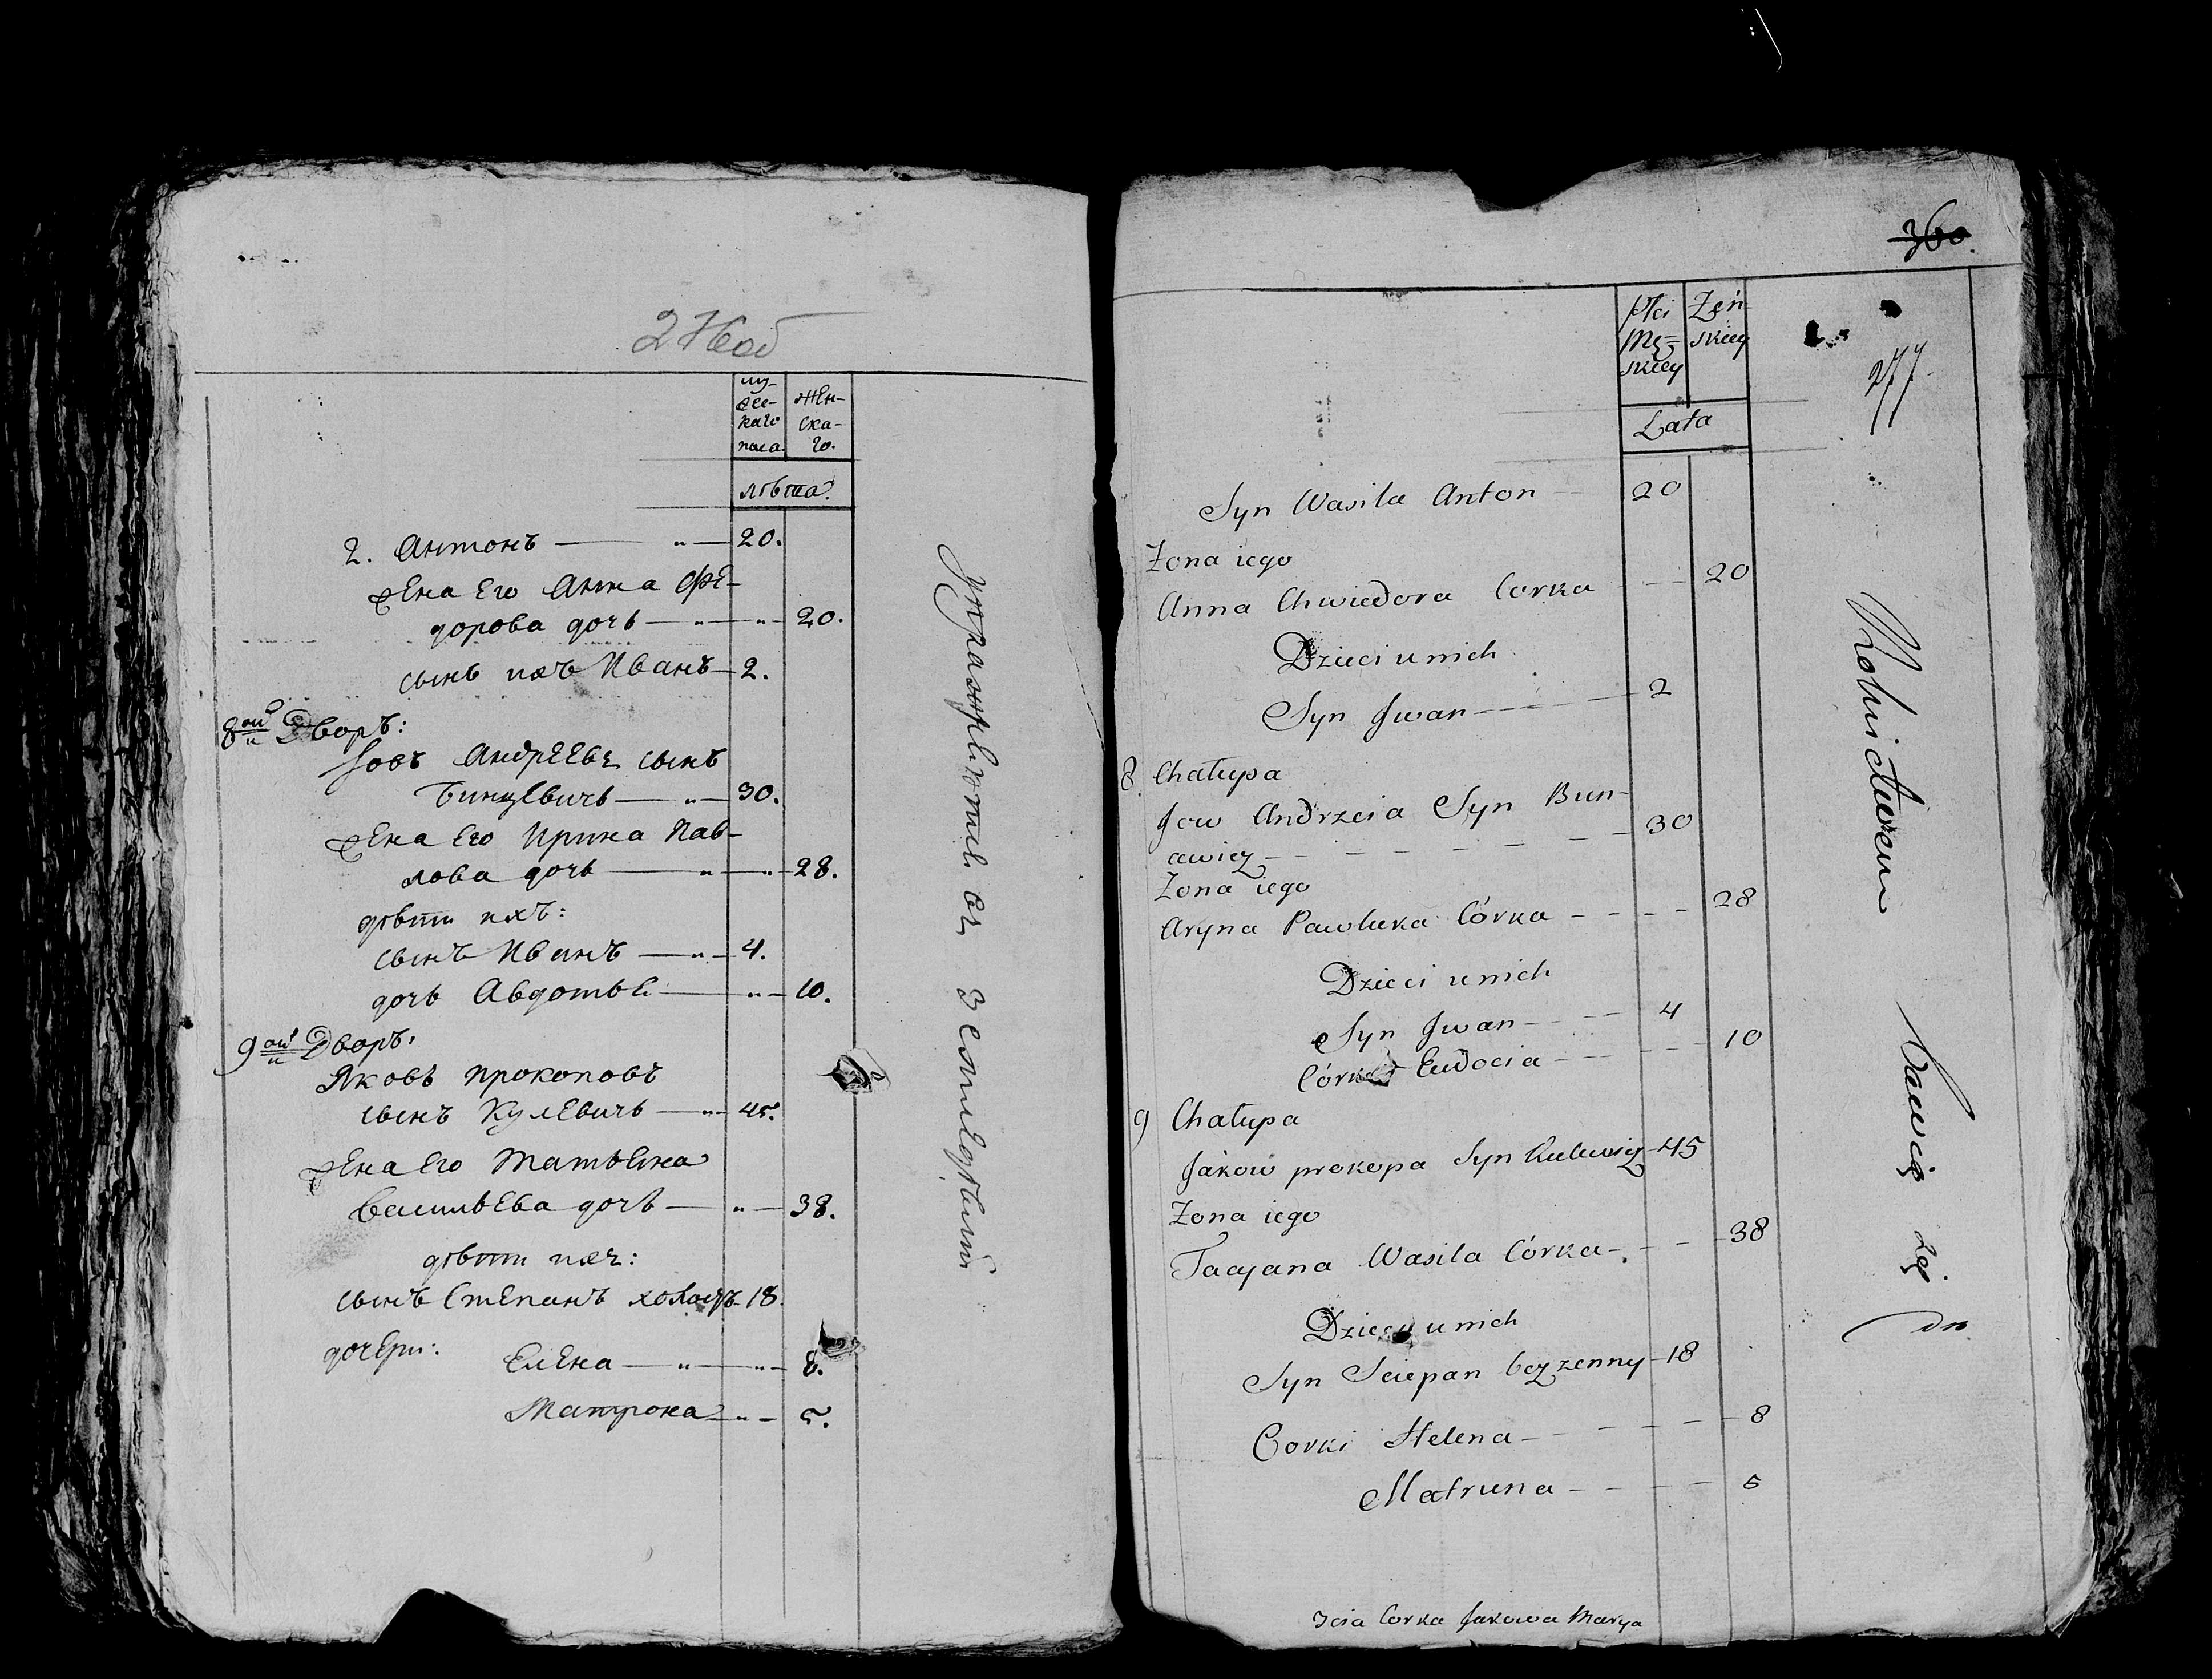 276об
му-
жес-
каго
пола.
Жен-
ска-
го.
лѣта.
2. Антонъ — " — 20.
жена Его Анна Фе-
дорова дочь — " — " — 20.
сынъ ихъ Иванъ — 2.
8ой Дворъ:
Iовъ Андреевъ сынъ
Бунцевичъ — " — 30.
жена Его Ирина Пав-
лова дочь — " — " — 28.
дѣти ихъ:
сынъ Иванъ — " — 4.
дочь Авдотья — " — 10.
9ой Дворъ:
Яковъ Прокоповъ
сынъ Кулевичъ — " — 45.
жена Его Татьяна
Васильева дочь — " — 38.
дѣти ихъ:
сынъ Степанъ холостъ — 18.
дочери: Елена — " — " — 8.
Матрона — " — 5.
Упражняется въ земледѣліи
360.
277
Płci
Mę=
skiey
Żeń-
skiey
Lata
Syn Wasila Anton — 20
Zona iego
Anna Chwiedora Corka - - - 20
Dzieci u nich
Syn Jwan - - - - 2
8. Chałupa
Jow Andrzeia Syn Bun-
awicz - - - - - - 30
Zona iego
Aryna Pawluka Córka - - - - 28
Dzieci u nich
Syn Jwan - - - - 4
Córka Eudocia - - - - - 10
9 Chałupa
Jakow prokopa Syn Kulewicz - 45
Zona iego
Tacyana Wasila Córka - - - - 38
Dzieci u nich
Syn Sciepan bezzenny - 18
Corki Helena - - - - - 8
Matruna - - - - - 5
3cia Corka Jakowa Marya
Rolnictwem bawią się